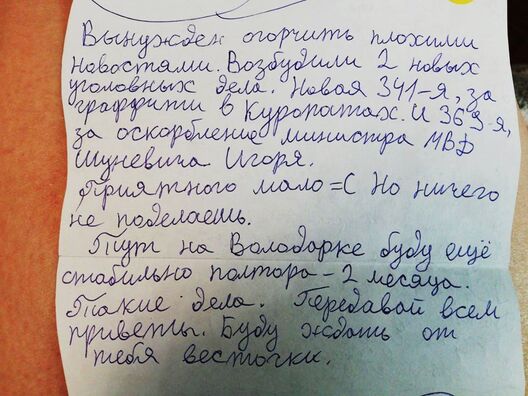 Вынужден огорчить плохими
новостями. Возбудили 2 новых
уголовных дела. Новая 341-я, за
граффити в Куропатах. И 369-я,
за оскорбление министра МВД
Шуневича Игоря.
Приятного мало =С Но ничего
не поделаешь.
Тут на Володарке буду ещё
стабильно полтора - 2 месяца.
Такие дела. Передавай всем
приветы. Буду ждать от
тебя весточки.